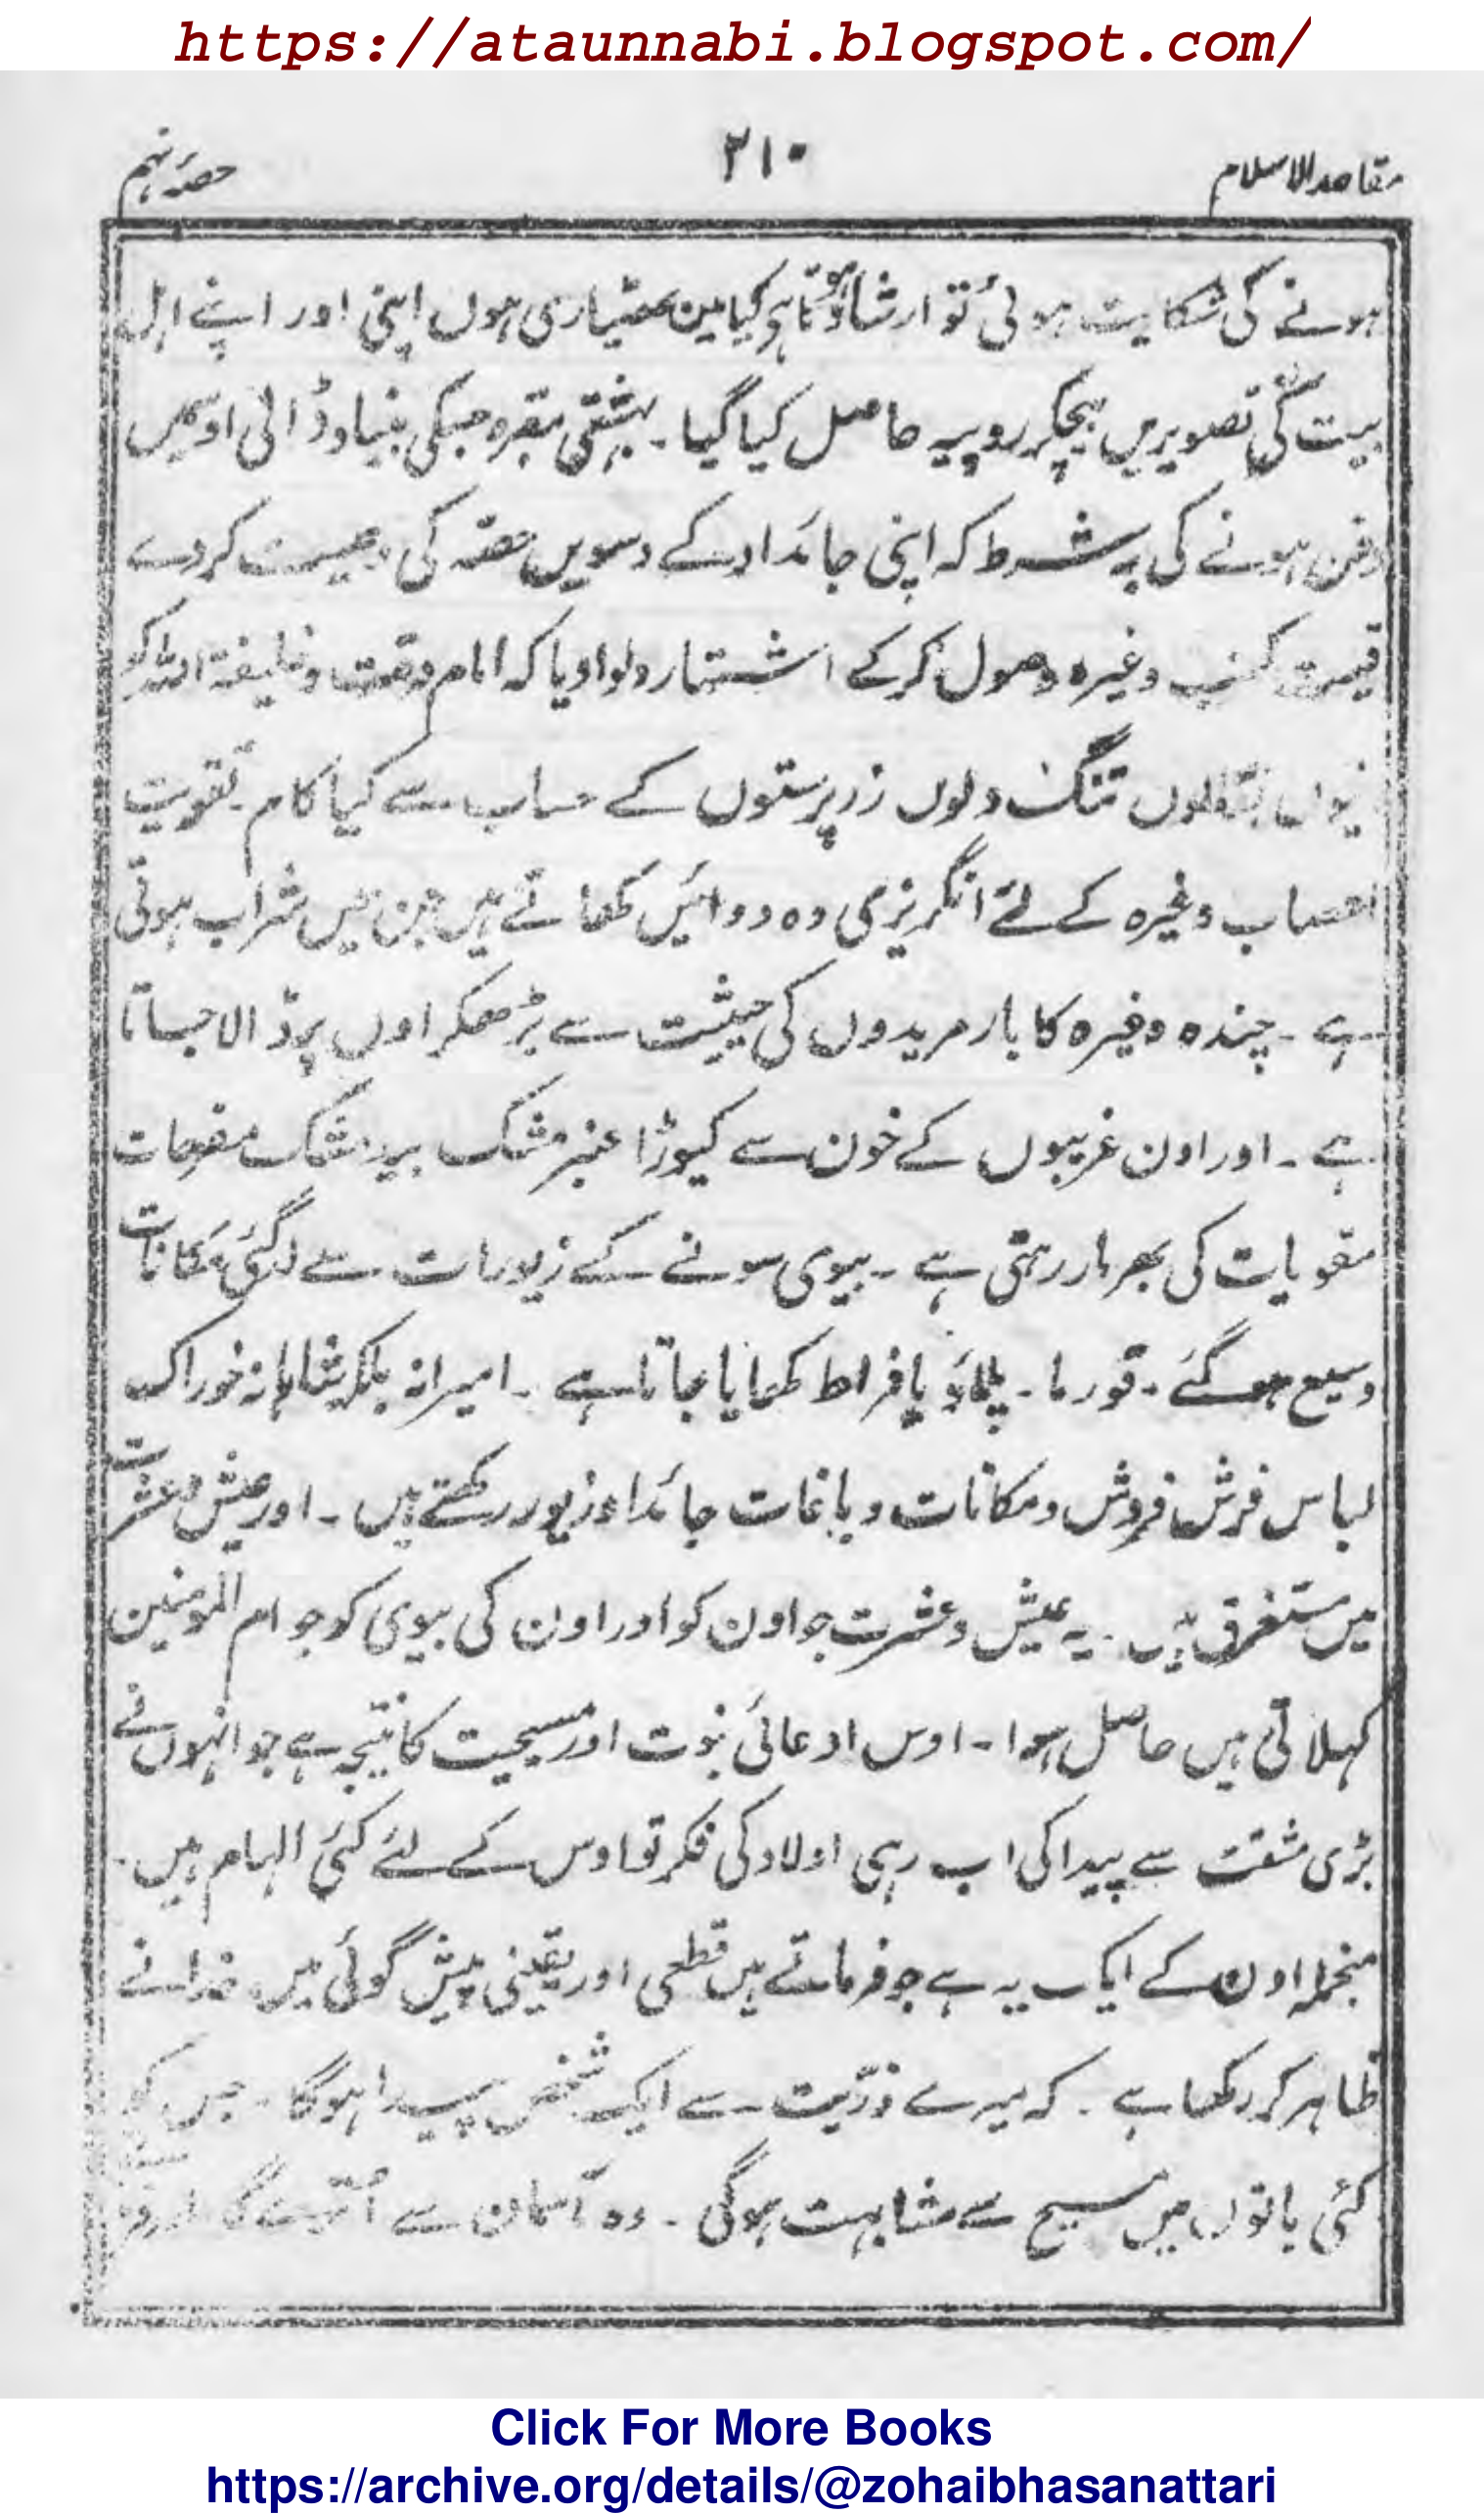 https://ataunnabi.blogspot.com/
مقاصدالاسلام
۲۱۰
حصۂ نہم
ہونے کی شکایت ہوئی تو ارشاد ہوتا ہے کیا مین بھٹیاری ہوں اپنی اور اپنے اہل
بیت کی تصویریں بیچکر روپیہ حاصل کیا گیا ۔ بہشتی مقبرہ جسکی بنیاد ڈالی اوسمیں
دفن ہونے کی یہ شرط کہ اپنی جائداد کے دسویں حصّہ کی وصیت کردے
قیمت کتب وغیرہ وصول کرکے اشتہار دلوا دیا کہ امام وقت وخلیفۃ اللہ کو
بقالوں تنگ دلوں زرپرستوں کے حساب سے کیا کام ۔ تقویت
اعصاب وغیرہ کے لئے انگریزی وہ دوائیں کھاتے ہیں جن میں شراب ہوتی
ہے ۔ چندہ وغیرہ کا بار مریدوں کی حیثیت سے بڑھکر اوں پر ڈالا جاتا
ہے ۔ اور اون غریبوں کے خون سے کیوڑا عنبر مشک بید مشک مفرحات
مقویات کی بھرمار رہتی ہے ۔ بیوی سونے کے زیورات سے لدگئی مکانات
وسیع ہوگئے ۔ قورما ۔ پلاؤ بافراط کھایا جاتا ہے ۔ امیرانہ بلکہ شاہانہ خوراک
لباس فرش فروش ومکانات وباغات جائداد زیور رکھتے ہیں ۔ اور عیش وعشرت
میں مستغرق ہیں ۔ یہ عیش وعشرت جو اون کو اور اون کی بیوی کو جو ام المومنین
کہلاتی ہیں حاصل ہوا ۔ اوس ادعائی نبوت اور مسیحیت کا نتیجہ ہے جو انہوں نے
بڑی مشقت سے پیدا کی اب رہی اولاد کی فکر تو اوس کے لئے کئی الہام ہیں ۔
منجملہ اون کے ایک یہ ہے جو فرماتے ہیں قطعی اور یقینی پیش گوئی میں خدا نے
ظاہر کر رکھا ہے ۔ کہ میرے ذرّیت سے ایک شخص پیدا ہوگا ۔ جس کو
کئی باتوں میں مسیح سے مشابہت ہوگی ۔ وہ آسمان سے اُترے گا
Click For More Books
https://archive.org/details/@zohaibhasanattari